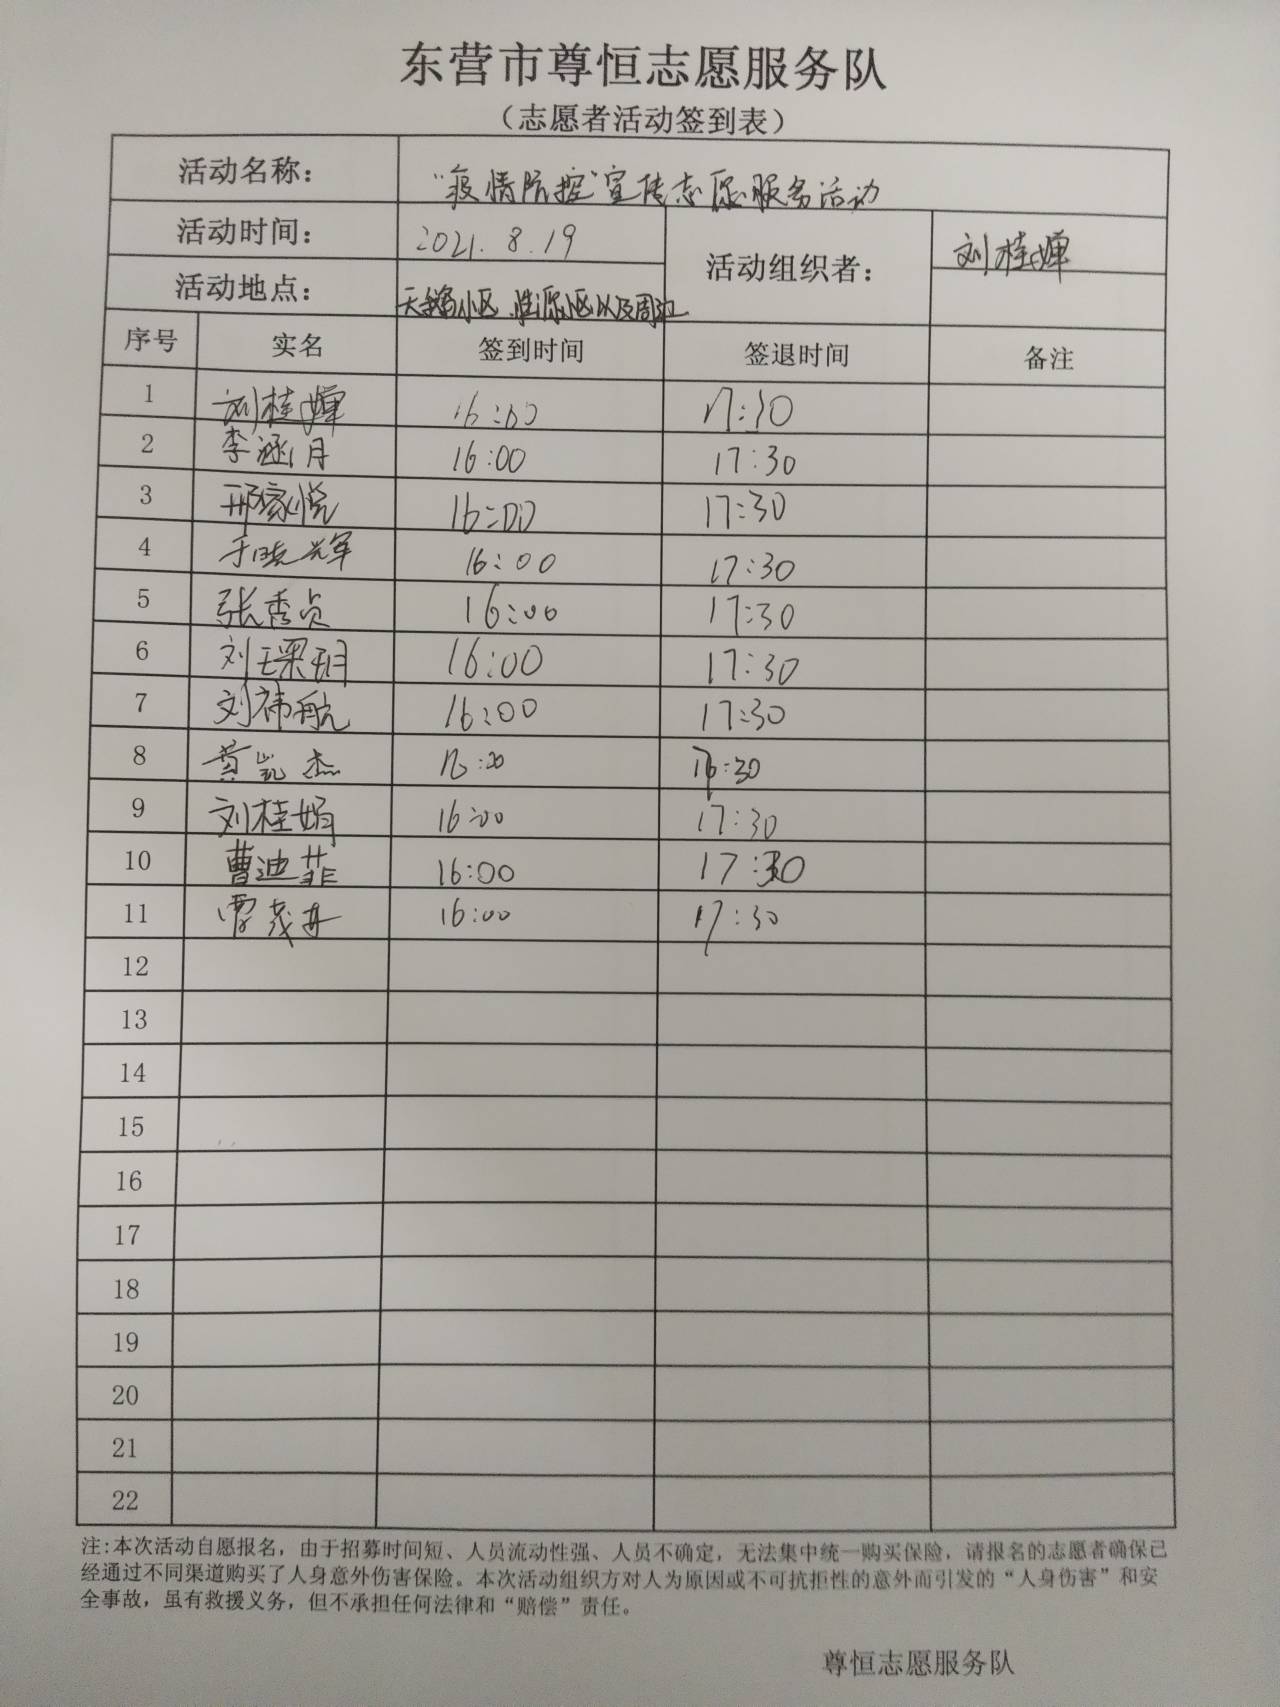 东营市尊恒志愿服务队
（志愿者活动签到表）
活动名称： “疫情防控”宣传志愿服务活动
活动时间： 2021.8.19 活动组织者： 刘桂婵
活动地点： 小区 小区以及周边
序号 实名 签到时间 签退时间 备注
1 刘桂婵 16:00 17:30
2 李涵月 16:00 17:30
3 邢家悦 16:00 17:30
4 于晓辉 16:00 17:30
5 张秀贞 16:00 17:30
6 刘璟玥 16:00 17:30
7 刘祎航 16:00 17:30
8 黄凯杰 16:00 :30
9 刘桂娟 16:00 17:30
10 曹迪菲 16:00 17:30
11 16:00 17:30
12
13
14
15
16
17
18
19
20
21
22
注:本次活动自愿报名，由于招募时间短、人员流动性强、人员不确定，无法集中统一购买保险，请报名的志愿者确保已
经通过不同渠道购买了人身意外伤害保险。本次活动组织方对人为原因或不可抗拒性的意外而引发的“人身伤害”和安
全事故，虽有救援义务，但不承担任何法律和“赔偿”责任。
尊恒志愿服务队